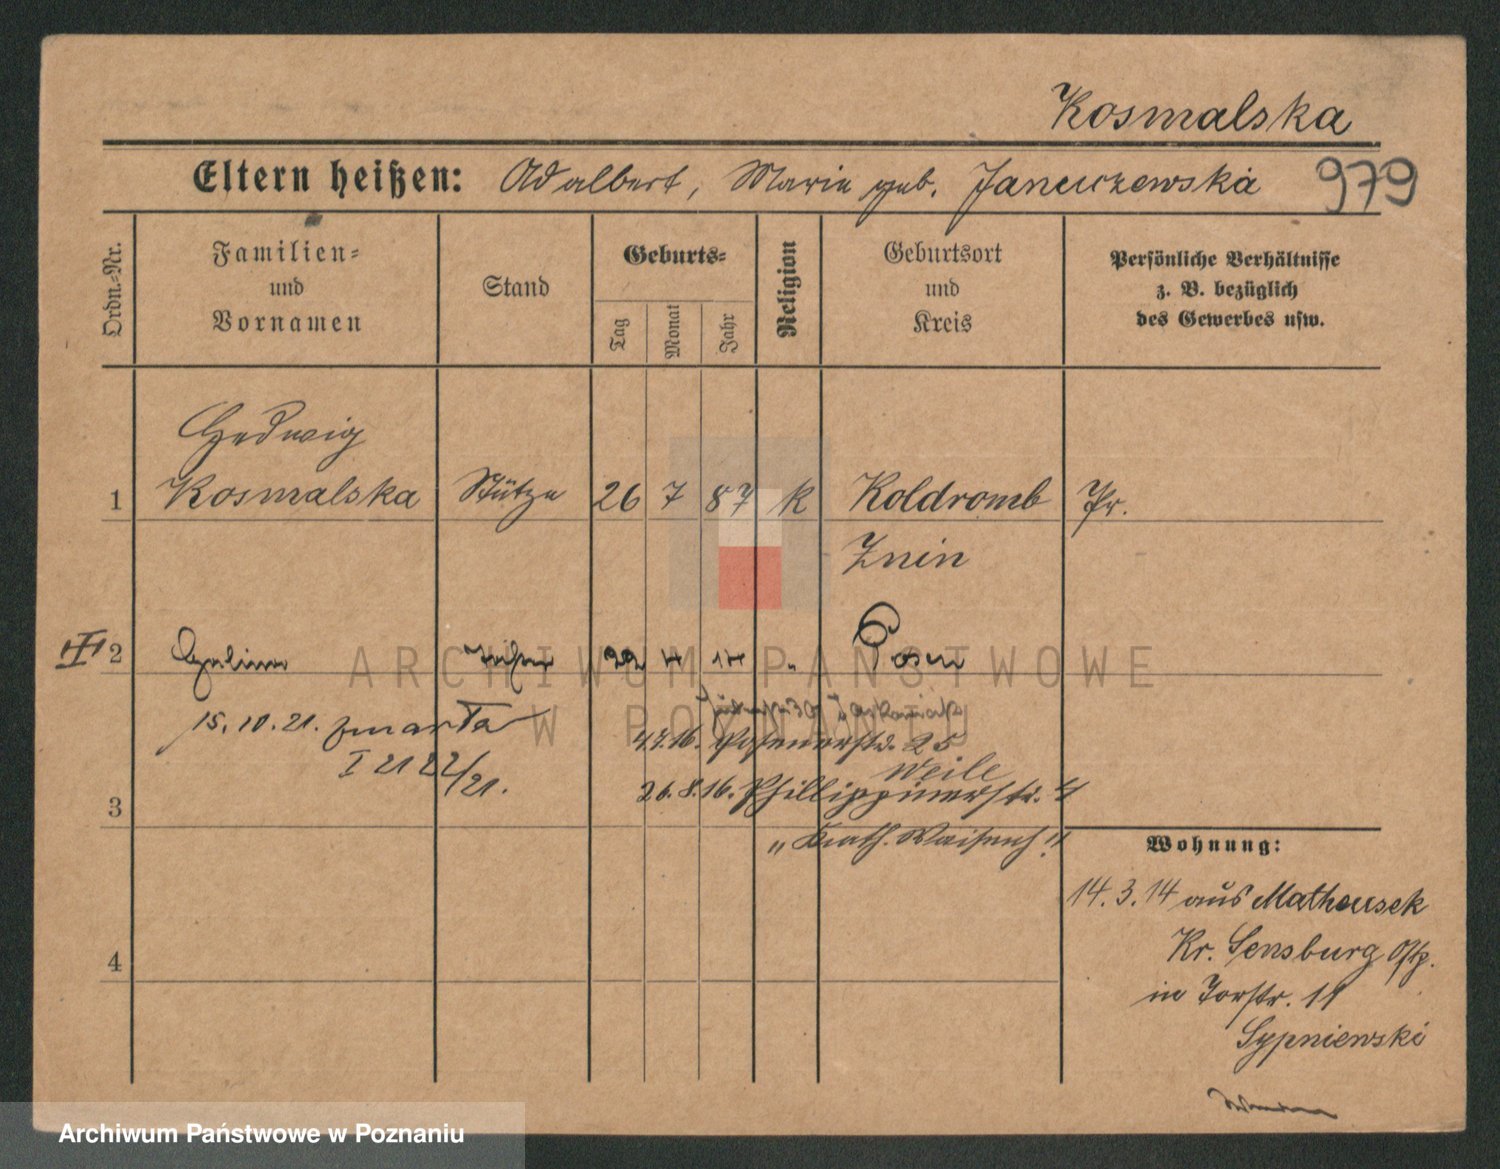 Kosmalska
Eltern heißen: Adalbert, Marie geb. Januczewska 979
Ordn.-Nr.
Familien-
und
Vornamen
Stand
Geburts-
Tag
Monat
Jahr
Religion
Geburtsort
und
Kreis
Persönliche Verhältnisse
z. B. bezüglich
des Gewerbes usw.
Hedwig
1 Kosmalska Stütze 26 7 87 k Koldromb Pr.
Znin
III 2 Tochter 22 4 14 " Posen
15.10.21. zmarła
I 21 22/21.
4.7.16. Posenerstr. 25
Weile
26.8.16. Phillippinerstr. 4
3
" Kath. Waisenh "
Wohnung:
14.3.14 aus Matheusek
4
Kr. Sensburg Ostp.
in Torstr. 11
Sypniewski
ARCHIWUM PAŃSTWOWE
W POZNANIU
Archiwum Państwowe w Poznaniu